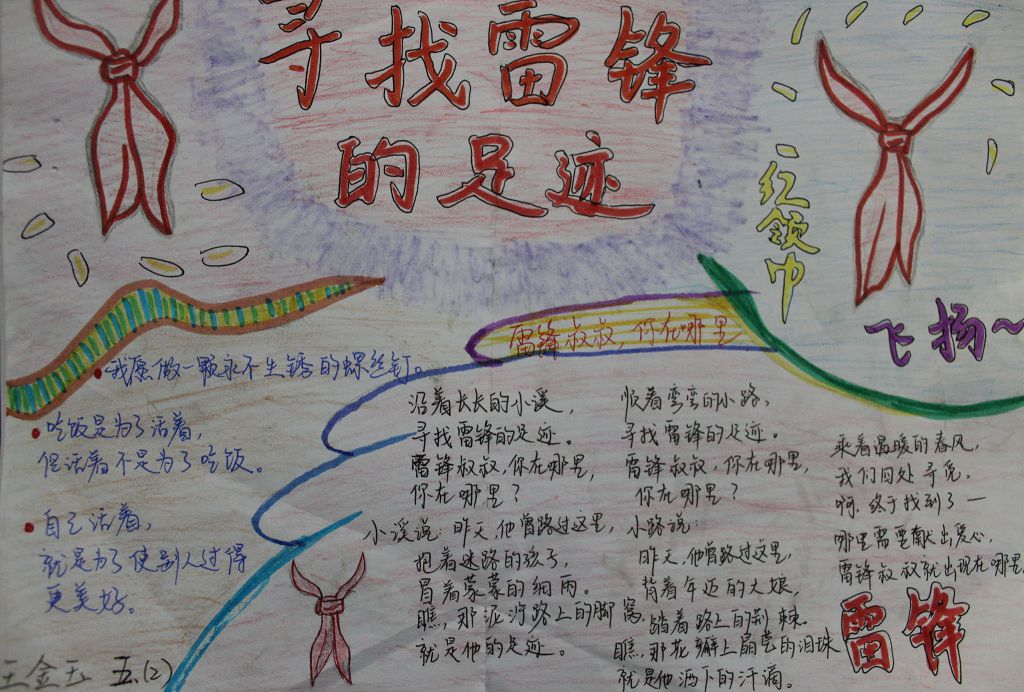 寻找雷锋
的足迹
红领巾
飞扬~
雷锋叔叔,你在哪里
•我愿做一颗永不生锈的螺丝钉。
•吃饭是为了活着,
但活着不是为了吃饭。
•自己活着,
就是为了使别人过得
更美好。
沿着长长的小溪,
寻找雷锋的足迹。
雷锋叔叔,你在哪里,
你在哪里?
小溪说:昨天,他曾路过这里,
抱着迷路的孩子,
冒着蒙蒙的细雨。
瞧,那泥泞路上的脚窝,
就是他的足迹。
顺着弯弯的小路,
寻找雷锋的足迹。
雷锋叔叔,你在哪里,
你在哪里?
小路说:
昨天,他曾路过这里,
背着年迈的大娘,
踏着路上的荆棘。
瞧,那花瓣上晶莹的泪珠
就是他洒下的汗滴。
乘着温暖的春风,
我们四处寻觅。
啊,终于找到了—
哪里需要献出爱心,
雷锋叔叔就出现在哪里。
雷锋
王金玉 五.(2)